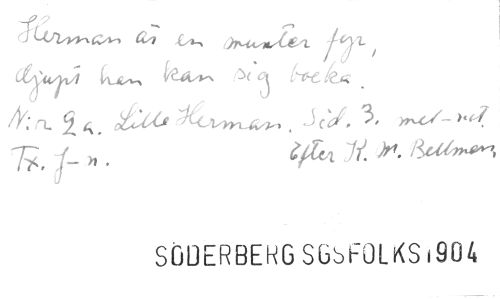 Herman är en munter fyr,
djupt han kan sig bocka.
N:r 2 a. Lille Herman. Sid. 3. mel-not.
Tx. f-n. Efter K. M. Bellman,
SÖDERBERG SGSFOLKS 1904